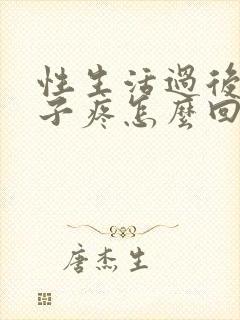 性生活過後
子疼怎麼回
唐杰生